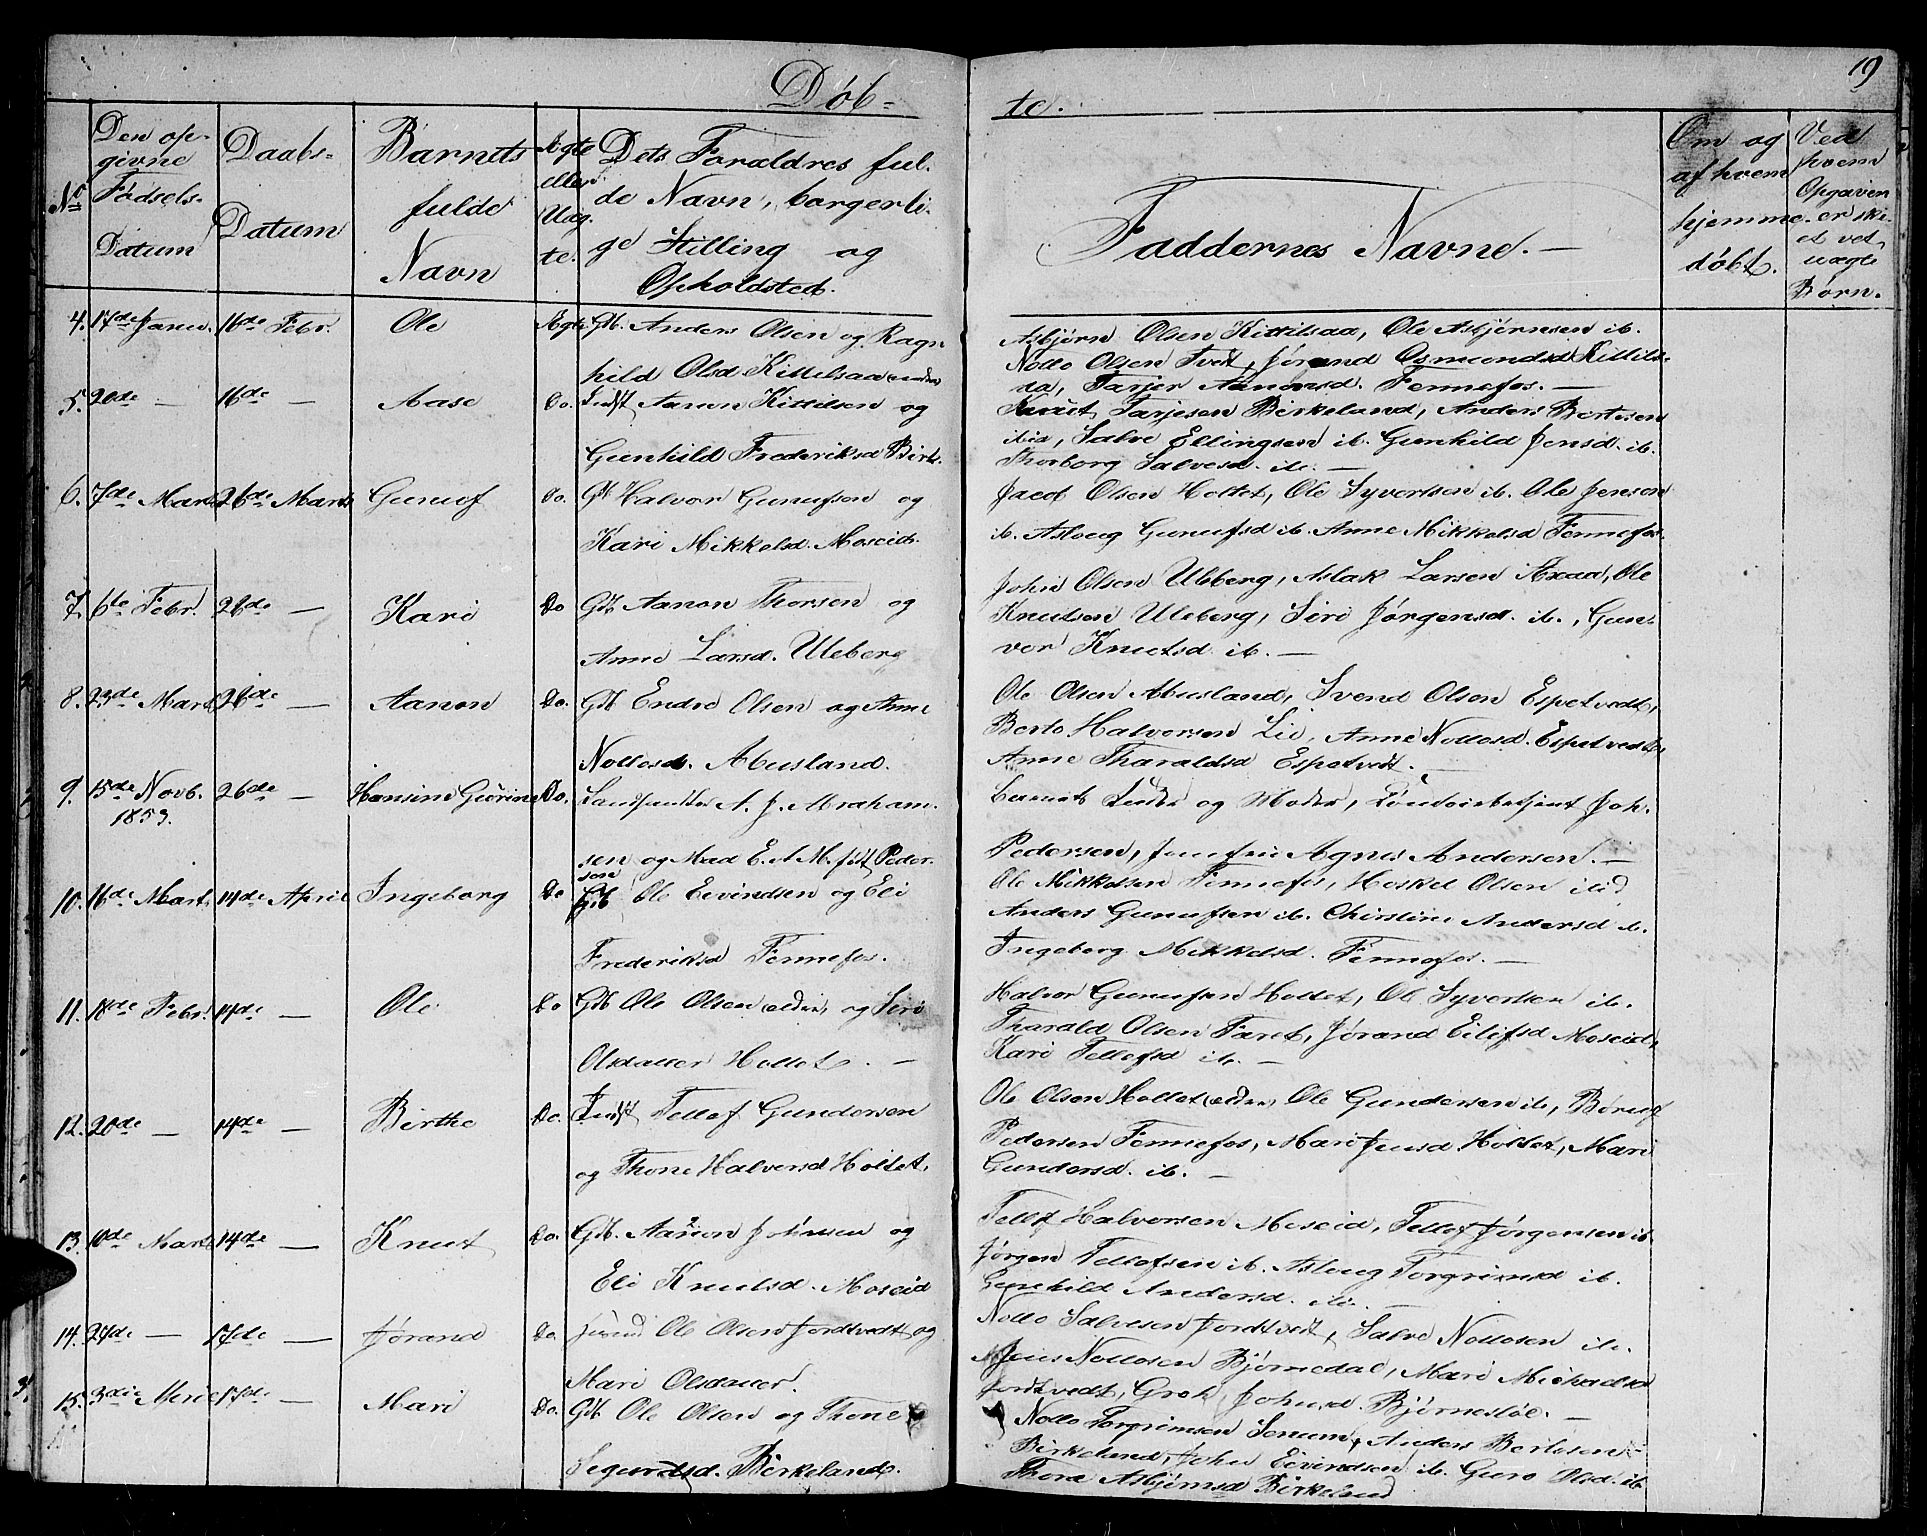 19
Døb-
te.
No
Den op-
givne
Fødsels-
Datum
Daabs-
Datum
Barnets
fulde
Navn
Ægte
eller
Uæg-
te.
Dets Forældres ful-
de Navn, borgerli-
ge Stilling og
Opholdsted.
Faddernes Navne.
Om og
af hvem
hjemme-
døbt.
Ved
hvem
Opgaven
er ske-
et ved
uægte
Børn.
4. 17de Janu. 16de Febr. Ole Ægte Gb. Anders Olsen og Ragn-
hild Olsd Kittelsaa
Asbjørn Olsen Kittilsaa, Ole Asbjørnsen ib.
Nollo Olsen Tveit, Jørand Osmundsd Kittils-
aa, Tarjer Aanonsd. Fennefos.
5. 20de — 16de — Aase Do. Indst Aanon Kittilsen og
Gunhild Frederiksd Birk.
Knut Tarjesen Birkeland, Anders Bertesen
ibid, Salve Ellingsen ib. Gunhild Jensd. ib.
Thorborg Salvesd. ib.
6. 7de Marts 26de Marts Gunuf Do. Gb Halvor Gunufsen og
Kari Mikkelsd. Moseid.
Jacob Olsen Holtet, Ole Syvertsen ib. Ole Jensen
ib. Asloug Gunufsd ib. Anne Mikkelsd Fennefos.
7. 6te Febr. 26de — Kari Do Gb Aanon Thorsen og
Anne Larsd. Uleberg
John Olsen Uleberg, Aslak Larsen Axaa, Ole
Knutsen Uleberg, Siri Jørgensd. ib., Gun-
vor Knutsd ib.
8. 23de Marts 26de — Aanon Do. Gb Endre Olsen og Anne
Nollosd. Abusland.
Ole Olsen Abusland, Svend Olsen Espetvedt,
Berto Halvorsen Lie, Anne Nollosd. Espetvedt,
Anne Tharaldsd Espetvedt.
9. 15de Novb. 26de — Hansine Gurine Do. Landhandler A. J. Abraham-
1853.
sen og Mad E. A M. født Peder-
sen
Barnets Fader og Moder, Toldbetjent Joh.
Pedersen, Jomfru Agnes Andersen.
10. 16de Marts 14de April Ingeborg Do Gb Ole Eivindsen og Eli
Frederiksd Fennefos.
Ole Mikkelsen Fennefos, Heskel Olsen ibid
Anders Gunufsen ib. Christine Andersd ib.
Ingeborg Mikkelsd. Fennefos.
11. 18de Febr. 14de — Ole Do Gb Ole Olsen ældre, og Siri
Olsdatter Holtet.
Halvor Gunufsen Holtet, Ole Syvertsen ib.
Tharald Olsen Faret, Jørand Eilifsd Moseid,
Kari Tellefsd ib.
12. 20de — 14de — Birthe Do. Indst Tellef Gundersen
og Thone Halvorsd Holtet.
Ole Olsen Holtet ældre, Ole Gundersen ib, Børuf
Pedersen Fennefos, Mari Jensd Holtet, Mari
Gundersd. ib.
13. 10de Marts 14de — Knut Do. Gb. Aanon Johnsen og
Eli Knutsd. Moseid
Tellef Halvorsen Moseid, Tellef Jørgensen ib
Jørgen Tellefsen ib. Asloug Torgrimsd ib.
Gunhild Andersd. ib.
14. 27de — 17de — Jørand Do. Ole Olsen Jordtvedt og
Mari Olsdatter.
Nollo Salvesen Jordtvedt, Salve Nollosen ib.
Jens Nollosen Bjørnedal, Mari Michaelsd
Jordtvedt, Groe Johnsd. Bjørnestøl.
15. 3die April 17de — Mari Do. Gb Ole Olsen og Thone
Segurdsd. Birkeland.
Nollo Torgrimsen Senum, Anders Bertesen
Birkeland, John Eivindsen ib. Guro Olsd. ib
Thora Asbjørnsd Birkeland